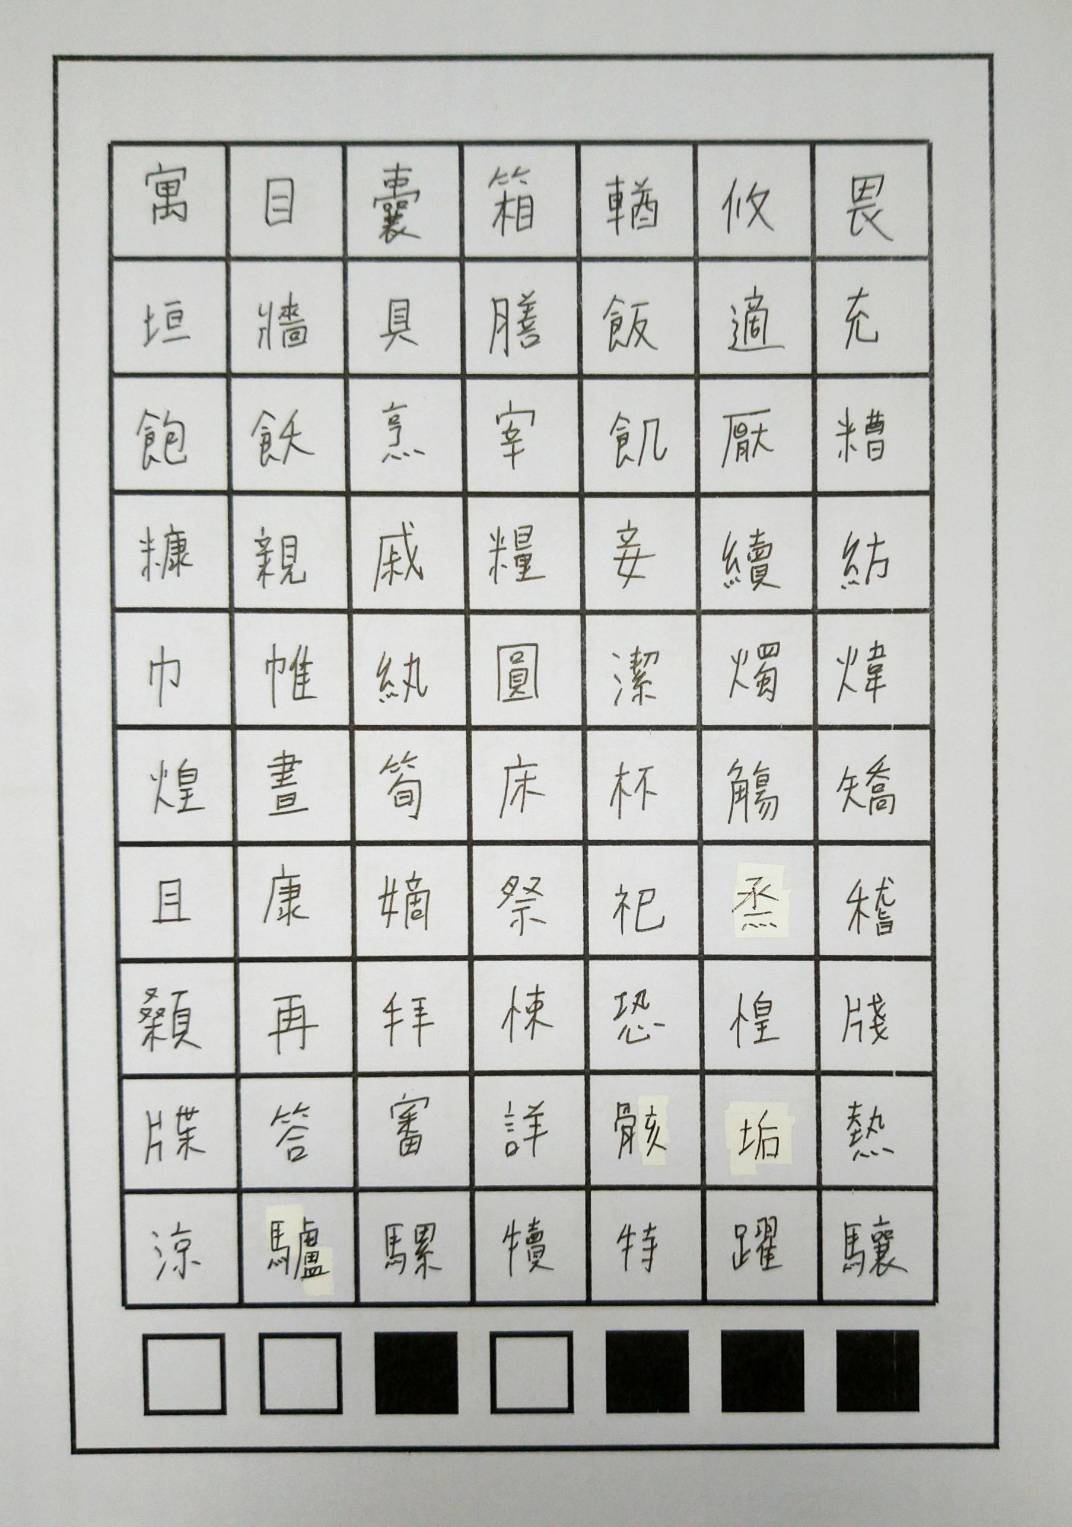 寓目囊箱輶攸畏
垣牆具膳飯適充
飽飫烹宰飢厭糟
糠親戚糧妾續紡
巾帷紈圓潔燭煒
煌晝筍床杯觴矯
且康嫡祭祀烝稽
顙再拜悚恐惶牋
牒答審詳骸垢熱
涼驢騾犢特躍驤